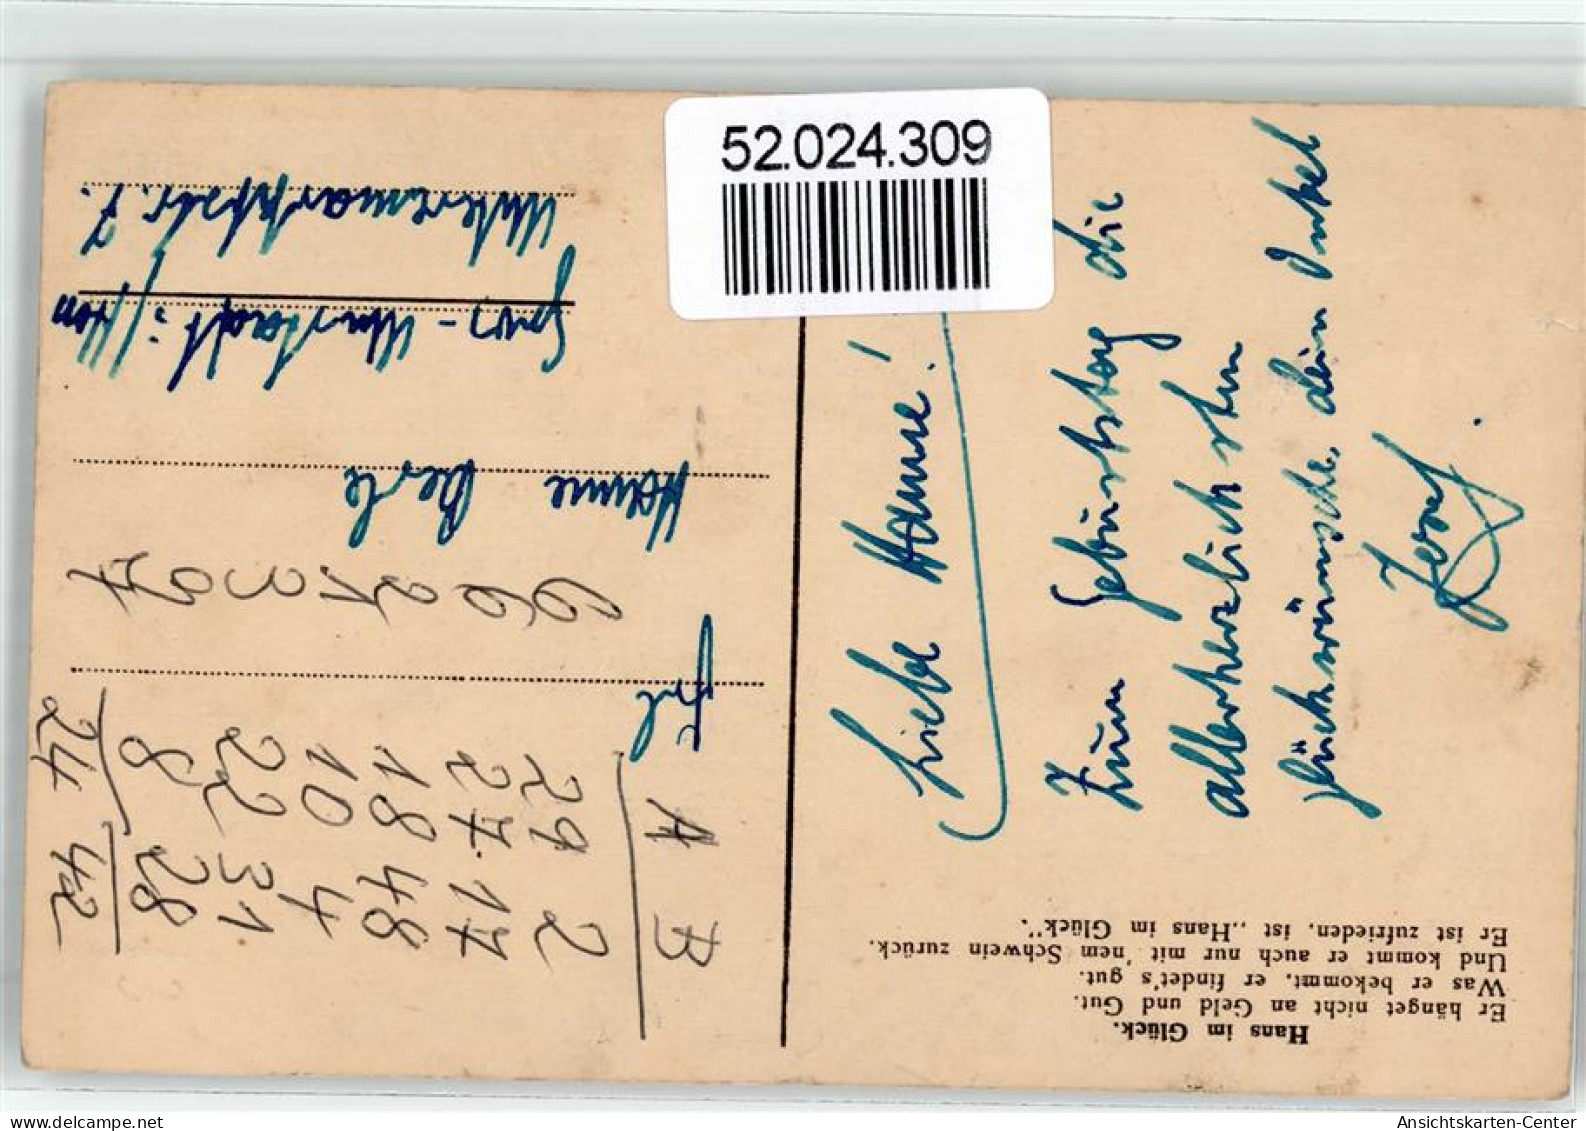 52.024.309
Liebe Hanne!
Zum Geburtstag die
allerherzlichsten
Glückwünsche, dein Onkel
Josef.
Frl
Hanne
Gros-Umstadt
7.
6621397
A B
29 2
27. 17
18 48
10 4
22 31
8 28
24 42
Hans im Glück.
Er hänget nicht an Geld und Gut.
Was er bekommt, er findet's gut.
Und kommt er auch nur mit 'nem Schwein zurück.
Er ist zufrieden, ist ,,Hans im Glück".
Ansichtskarten-Center